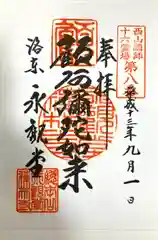 西山國師
十六霊場
第八
平成十三年九月一日
奉拝
顧阿彌陀如来
洛東
永観堂